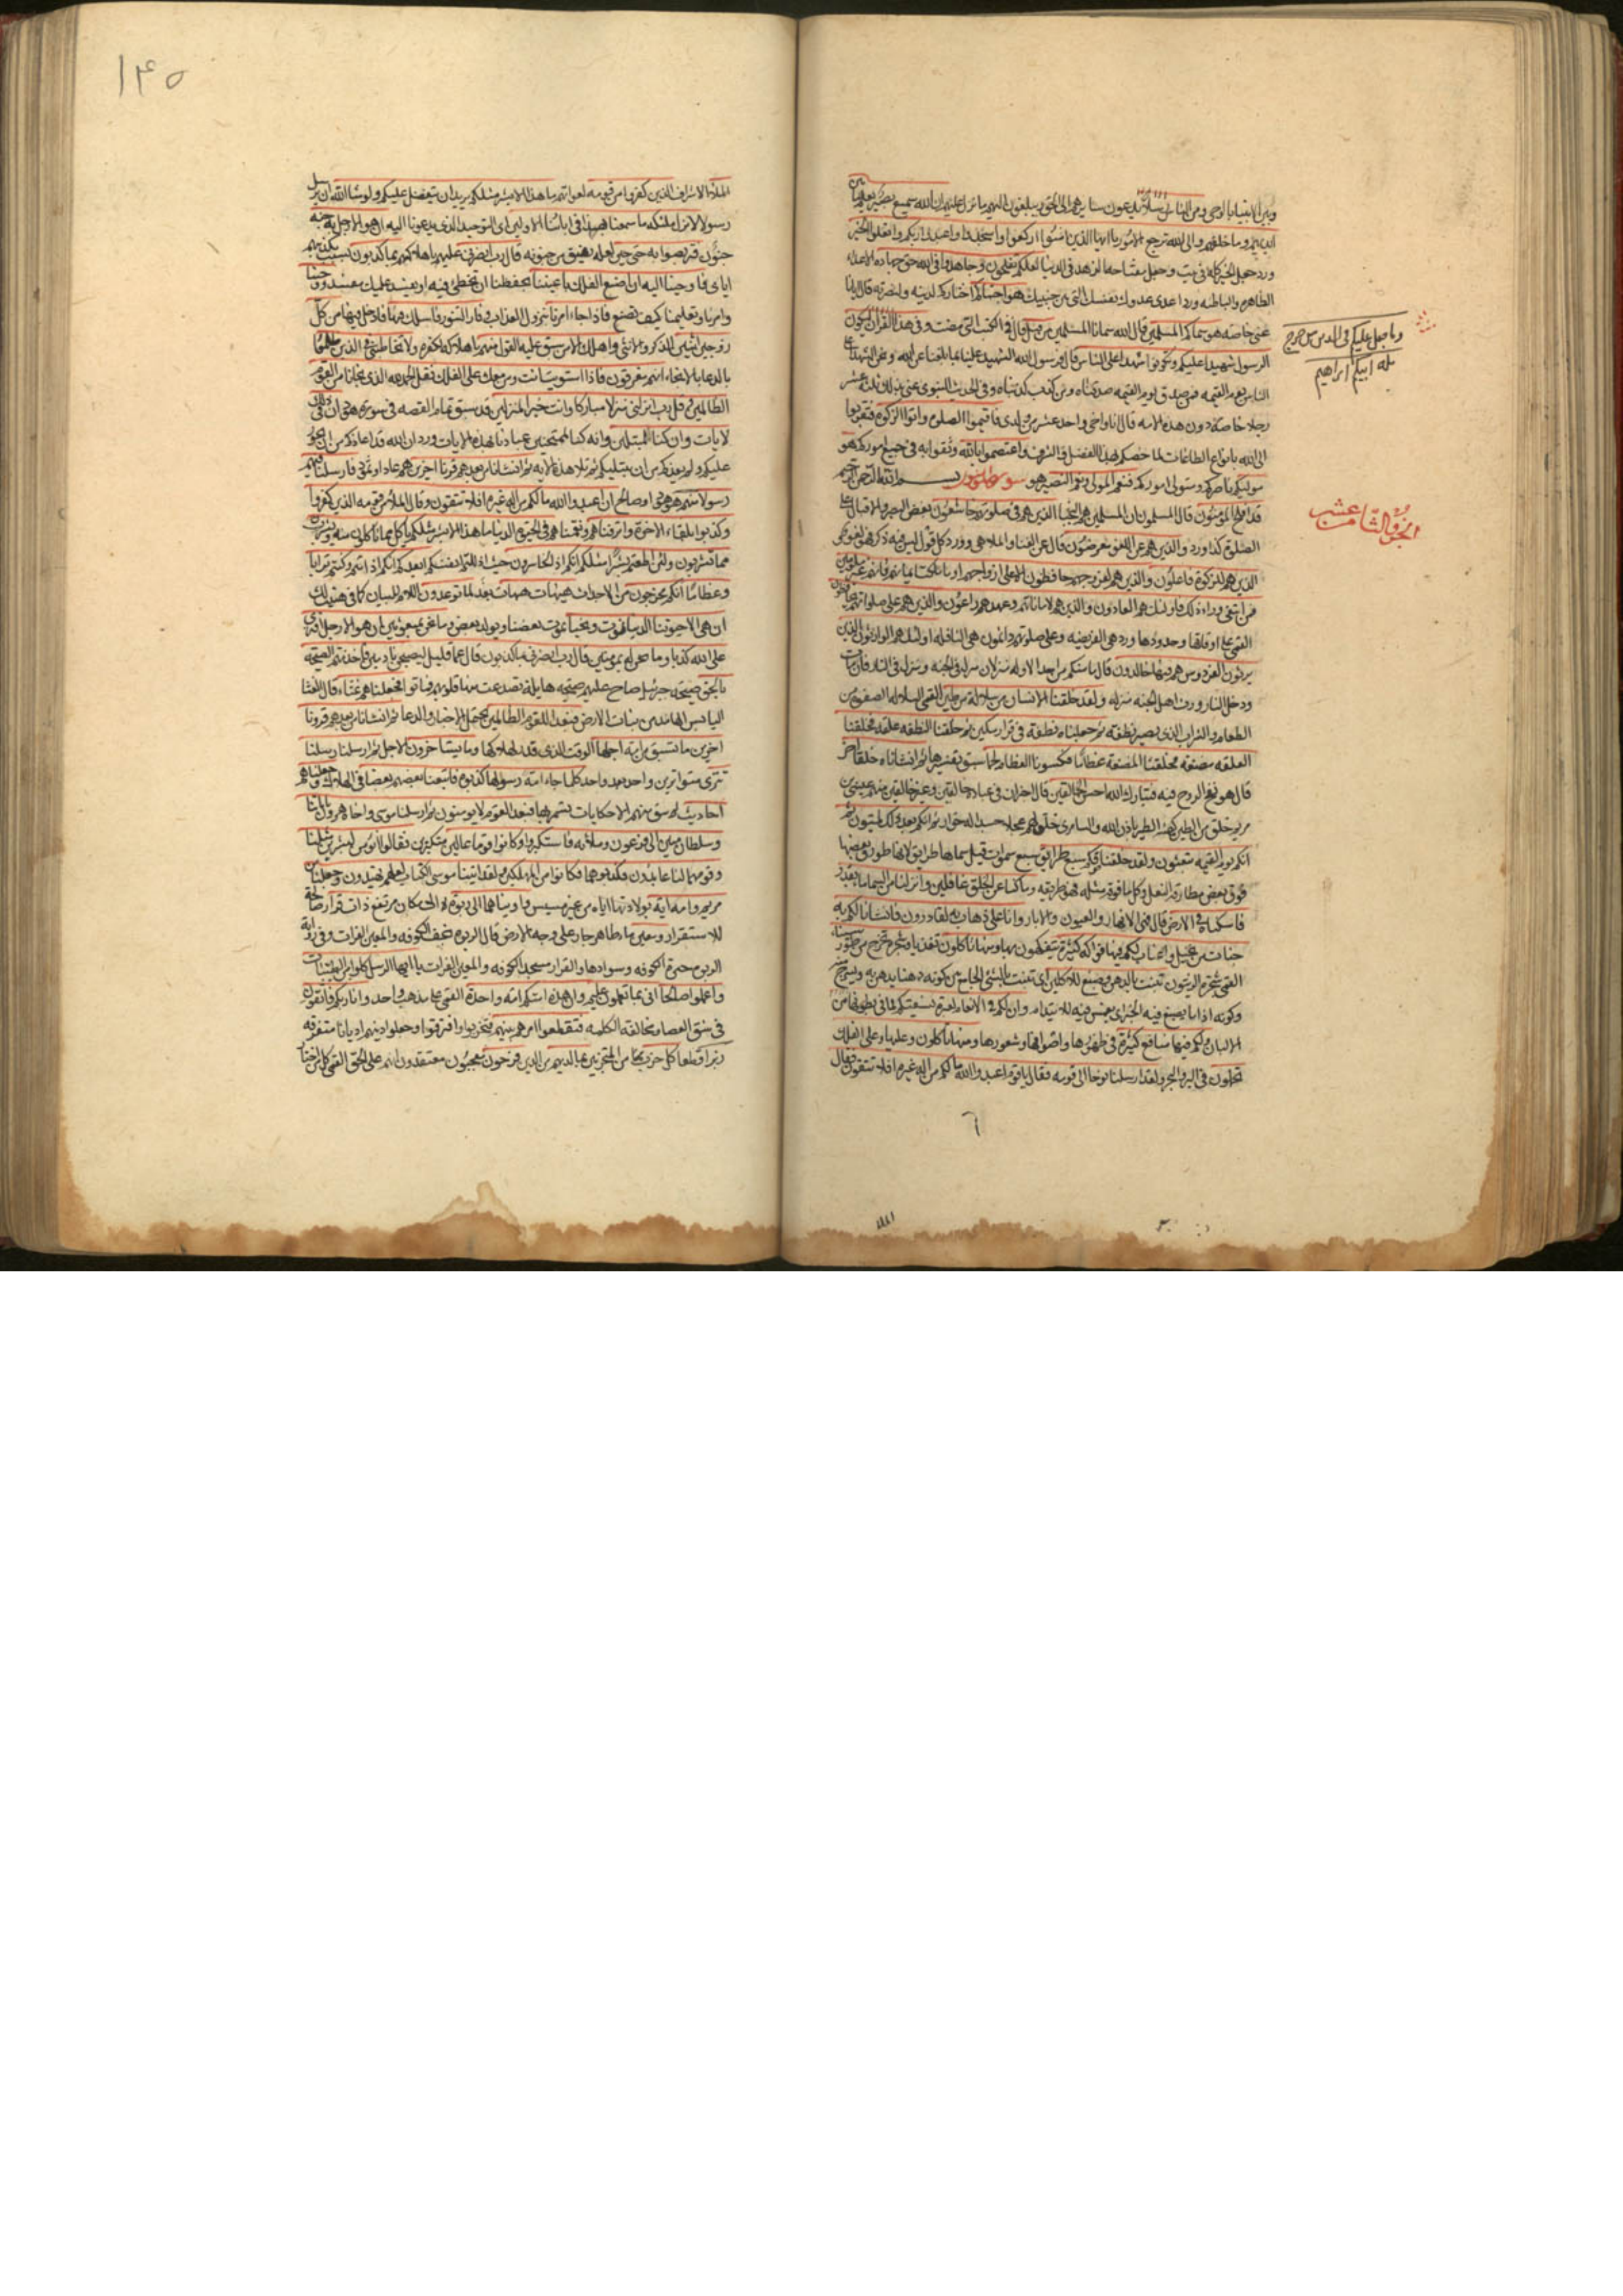 وبين الانبياء بالوحي ومن الناس رسلا يدعون سايرهم الى الحق ويبلغون اليهم ما نزل عليهم ان الله سميع بصير يعلم ما بين
ايديهم وما خلفهم والى الله ترجع الامور يا ايها الذين امنوا اركعوا واسجدوا واعبدوا ربكم وافعلوا الخير
ورد جعل الخير كله في بيت وجعل مفتاحه الزهد في الدنيا لعلكم تفلحون وجاهدوا في الله حق جهاده الاعداء
الظاهره والباطنه ورد اعدى عدوك نفسك التي بين جنبيك هو اجتباكم اختاركم لدينه ولنصرته قال ايانا
عنى خاصه هو سماكم المسلمين قال الله سمانا المسلمين من قبل قال في الكتب التي مضت وفي هذا القران ليكون
الرسول شهيدا عليكم وتكونوا شهداء على الناس قال فرسول الله الشهيد علينا بما بلغنا عن الله ونحن الشهداء على
الناس يوم القيمه فمن صدق يوم القيمه صدقناه ومن كذب كذبناه وفي الحديث النبوي عنى بذلك ثلثه عشر
رجلا خاصة دون هذه الامه قال انا واخي واحد عشر من ولدي فاقيموا الصلوة واتوا الزكوة فتقربوا
الى الله بانواع الطاعات لما خصكم بهذا الفضل والشرف واعتصموا بالله وثقوا به في جميع اموركم هو
موليكم ناصركم ومتولي اموركم فنعم المولى ونعم النصير هو سورة المؤمنون بسم الله الرحمن الرحيم
قد افلح المؤمنون قال المسلمون ان المسلمين هم النجباء الذين هم في صلوتهم خاشعون بغض البصر والاقبال على
الصلوة كذا ورد والذين هم عن اللغو معرضون قال عن الغنا والملاهي وورد كل قول ليس فيه ذكر فهو لغو
الذين هم للزكوة فاعلون والذين هم لفروجهم حافظون الا على ازواجهم او ما ملكت ايمانهم فانهم غير ملومين
فمن ابتغى وراء ذلك فاولئك هم العادون والذين هم لاماناتهم وعهدهم راعون والذين هم على صلواتهم يحافظون
القمي على اوقاتها وحدودها ورد هي الفريضه وعلى صلوتهم دائمون هي النافله اولئك هم الوارثون الذين
يرثون الفردوس هم فيها خالدون قال ما منكم من احد الا وله منزلان منزل في الجنه ومنزل في النار فان مات
ودخل النار ورث اهل الجنه منزله ولقد خلقنا الانسان من سلالة من طين القمي السلاله الصفوة من
الطعام والشراب الذي يصير نطفة ثم جعلناه نطفة في قرار مكين ثم خلقنا النطفه علقه فخلقنا
العلقه مضغه فخلقنا المضغة عظاما فكسونا العظام لحما سبق تفسيرها ثم انشاناه خلقا اخر
قال هو نفخ الروح فيه فتبارك الله احسن الخالقين قال اخبر ان في عباده خالقين وغير خالقين منهم عيسى بن
مريم خلق من الطين كهيئة الطير باذن الله والسامري خلق لهم عجلا جسدا له خوار ثم انكم بعد ذلك لميتون ثم
انكم يوم القيمه تبعثون ولقد خلقنا فوقكم سبع طرايق سبع سموات قيل سماها طرايق لانها طورق بعضها
فوق بعض مطارقة النعل وكل ما فوقه مثله فهو طريقه وما كنا عن الخلق غافلين وانزلنا من السماء ماء بقدر
فاسكناه في الارض قال فهي الانهار والعيون والابار وانا على ذهاب به لقادرون فانشانا لكم به
جنات من نخيل واعناب لكم فيها فواكه كثيرة تتفكهون بها ومنها تاكلون تغذيا وشجرة تخرج من طور سيناء
القمي شجرة الزيتون تنبت بالدهن وصبغ للاكلين اي تنبت بالشئ الجامع بين كونه دهنا يدهن به ويسرج منه
وكونه اداما يصبغ فيه الخبز اي يغمس فيه للايتدام وان لكم في الانعام لعبرة نسقيكم مما في بطونها من
الالبان ولكم فيها منافع كثيرة في ظهورها واصوافها وشعورها ومنها تاكلون وعليها وعلى الفلك
تحملون في البر والبحر ولقد ارسلنا نوحا الى قومه فقال يا قوم اعبدوا الله ما لكم من اله غيره افلا تتقون فقال
وما جعل عليكم في الدين من حرج
ملة ابيكم ابراهيم
الجزو الثامن عشر
١٤٥
الملاء الاشراف الذين كفروا من قومه لعوامهم ما هذا الا بشر مثلكم يريد ان يتفضل عليكم ولو شاء الله ان يرسل
رسولا لانزل ملئكه ما سمعنا بهذا في ابائنا الاولين اي التوحيد الذي يدعونا اليه ان هو الا رجل به جنه
جنون فتربصوا به حتى حين لعله يفيق من جنونه قال رب انصرني عليهم باهلاكهم بما كذبون بسبب تكذيبهم
اياي فاوحينا اليه ان اصنع الفلك باعيننا بحفظنا ان تخطئ فيه او يفسد عليك مفسد ووحينا
وامرنا وتعليمنا كيف تصنع فاذا جاء امرنا بنزول العذاب وفار التنور فاسلك فيها فادخل فيها من كل
زوجين اثنين الذكر والانثى واهلك الا من سبق عليه القول منهم باهلاكه لكفره ولا تخاطبني في الذين ظلموا
بالدعاء بالانجاء انهم مغرقون فاذا استويت انت ومن معك على الفلك فقل الحمد لله الذي نجانا من القوم
الظالمين وقل رب انزلني منزلا مباركا وانت خير المنزلين قد سبق تمام القصه في سورة هود ان في ذلك
لايات وان كنا لمبتلين وانه كنا لممتحنين عبادنا بهذه الايات ورد ان الله قد اعاذكم من ان يجور
عليكم ولم يعذكم من ان يبتليكم ثم تلا هذه الايه ثم انشانا من بعدهم قرنا اخرين هم عاد او ثمود فارسلنا فيهم
رسولا منهم هو هود او صالح ان اعبدوا الله ما لكم من اله غيره افلا تتقون وقال الملاء من قومه الذين كفروا
وكذبوا بلقاء الاخرة واترفناهم ونعمناهم في الحيوة الدنيا ما هذا الا بشر مثلكم ياكل مما تاكلون منه ويشرب
مما تشربون ولئن اطعتم بشرا مثلكم انكم اذا لخاسرون حيث اذللتم انفسكم ايعدكم انكم اذا متم وكنتم ترابا
وعظاما انكم مخرجون من الاجداث هيهات هيهات بعد لما توعدون اللام للبيان كما في هيت لك
ان هي الا حيوتنا الدنيا نموت ونحيا يموت بعضنا ويولد بعض وما نحن بمبعوثين ان هو الا رجل افترى
على الله كذبا وما نحن له بمؤمنين قال رب انصرني بما كذبون قال عما قليل ليصبحن نادمين فاخذتهم الصيحه
بالحق صيحة جبرئيل صاح عليهم صيحة هايلة تصدعت منها قلوبهم فماتوا فجعلناهم غثاء قال الغثا
اليابس الهامد من نبات الارض فبعدا للقوم الظالمين يحتمل الاخبار والدعا ثم انشانا من بعدهم قرونا
اخرين ما تسبق من امة اجلها الوقت الذي قدر لهلاكها وما يستاخرون الاجل ثم ارسلنا رسلنا
تترى متواترين واحدا بعد واحد كلما جاء امة رسولها كذبوه فاتبعنا بعضهم بعضا في الهلاك وجعلناهم
احاديث لم يبق منهم الا حكايات يسمر بها فبعدا لقوم لا يؤمنون ثم ارسلنا موسى واخاه هرون باياتنا
وسلطان مبين الى فرعون وملائه فاستكبروا وكانوا قوما عالين متكبرين فقالوا انؤمن لبشرين مثلنا
وقومهما لنا عابدون فكذبوهما فكانوا من المهلكين ولقد اتينا موسى الكتاب لعلهم يهتدون وجعلنا ابن
مريم وامه اية بولادتها اياه من غير مسيس واويناهما الى ربوة الى مكان مرتفع ذات قرار صالحة
للاستقرار ومعين ماء ظاهر جار على وجه الارض قال الربوه نجف الكوفه والمعين الفرات وفي رواية
الربوه حيرة الكوفه وسوادها والقرار مسجد الكوفه والمعين الفرات يا ايها الرسل كلوا من الطيبات
واعملوا صالحا اني بما تعملون عليم وان هذه امتكم امة واحدة القمي على مذهب واحد وانا ربكم فاتقون
في شق العصا ومخالفة الكلمه فتقطعوا امرهم بينهم فتحزبوا وافترقوا وجعلوا دينهم اديانا متفرقه
زبرا قطعا كل حزب من المتحزبين بما لديهم من الدين فرحون معجبون معتقدون انهم على الحق القمي كل من اختار